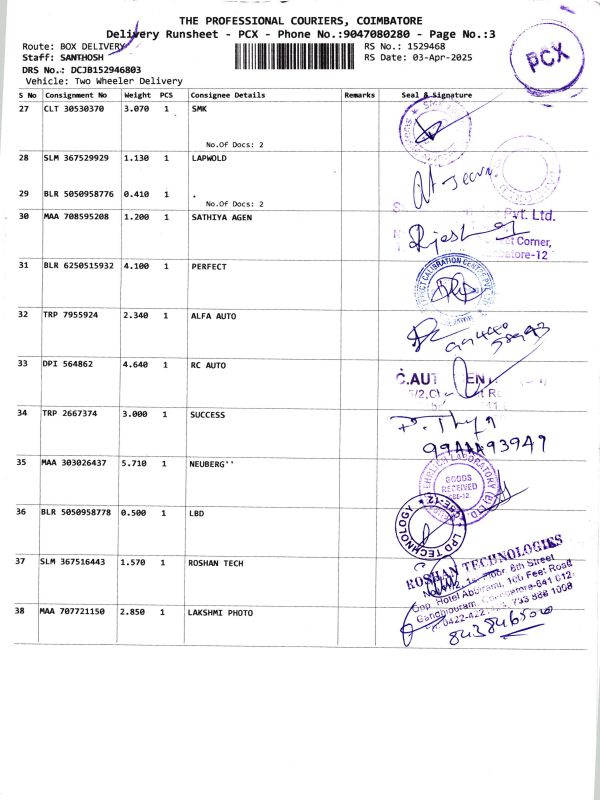 THE PROFESSIONAL COURIERS, COIMBATORE
Delivery Runsheet - PCX - Phone No.:9047080280 - Page No.:3
Route: BOX DELIVERY
RS No.: 1529468
Staff: SANTHOSH
RS Date: 03-Apr-2025
DRS No.: DCJB152946803
Vehicle: Two Wheeler Delivery
PCX
S No Consignment No Weight PCS Consignee Details Remarks Seal & Signature
27 CLT 30530370 3.070 1 SMK
No.Of Docs: 2
28 SLM 367529929 1.130 1 LAPWOLD
29 BLR 5050958776 0.410 1 .
No.Of Docs: 2
30 MAA 708595208 1.200 1 SATHIYA AGEN
Pvt. Ltd.
Corner,
-12
31 BLR 6250515932 4.100 1 PERFECT
32 TRP 7955924 2.340 1 ALFA AUTO
33 DPI 564862 4.640 1 RC AUTO
C.AUT
34 TRP 2667374 3.000 1 SUCCESS
35 MAA 303026437 5.710 1 NEUBERG''
EHRLICH LABORATORY (P) LTD
GOODS
RECEIVED
CBE-12
36 BLR 5050958778 0.500 1 LBD
TECHNOLOGY
37 SLM 367516443 1.570 1 ROSHAN TECH
ROSHAN TECHNOLOGIES
Floor, 6th Street
Opp. Hotel Abbirami, 100 Feet Road
Gandhipuram, Coimbatore-641 012.
38 MAA 707721150 2.850 1 LAKSHMI PHOTO